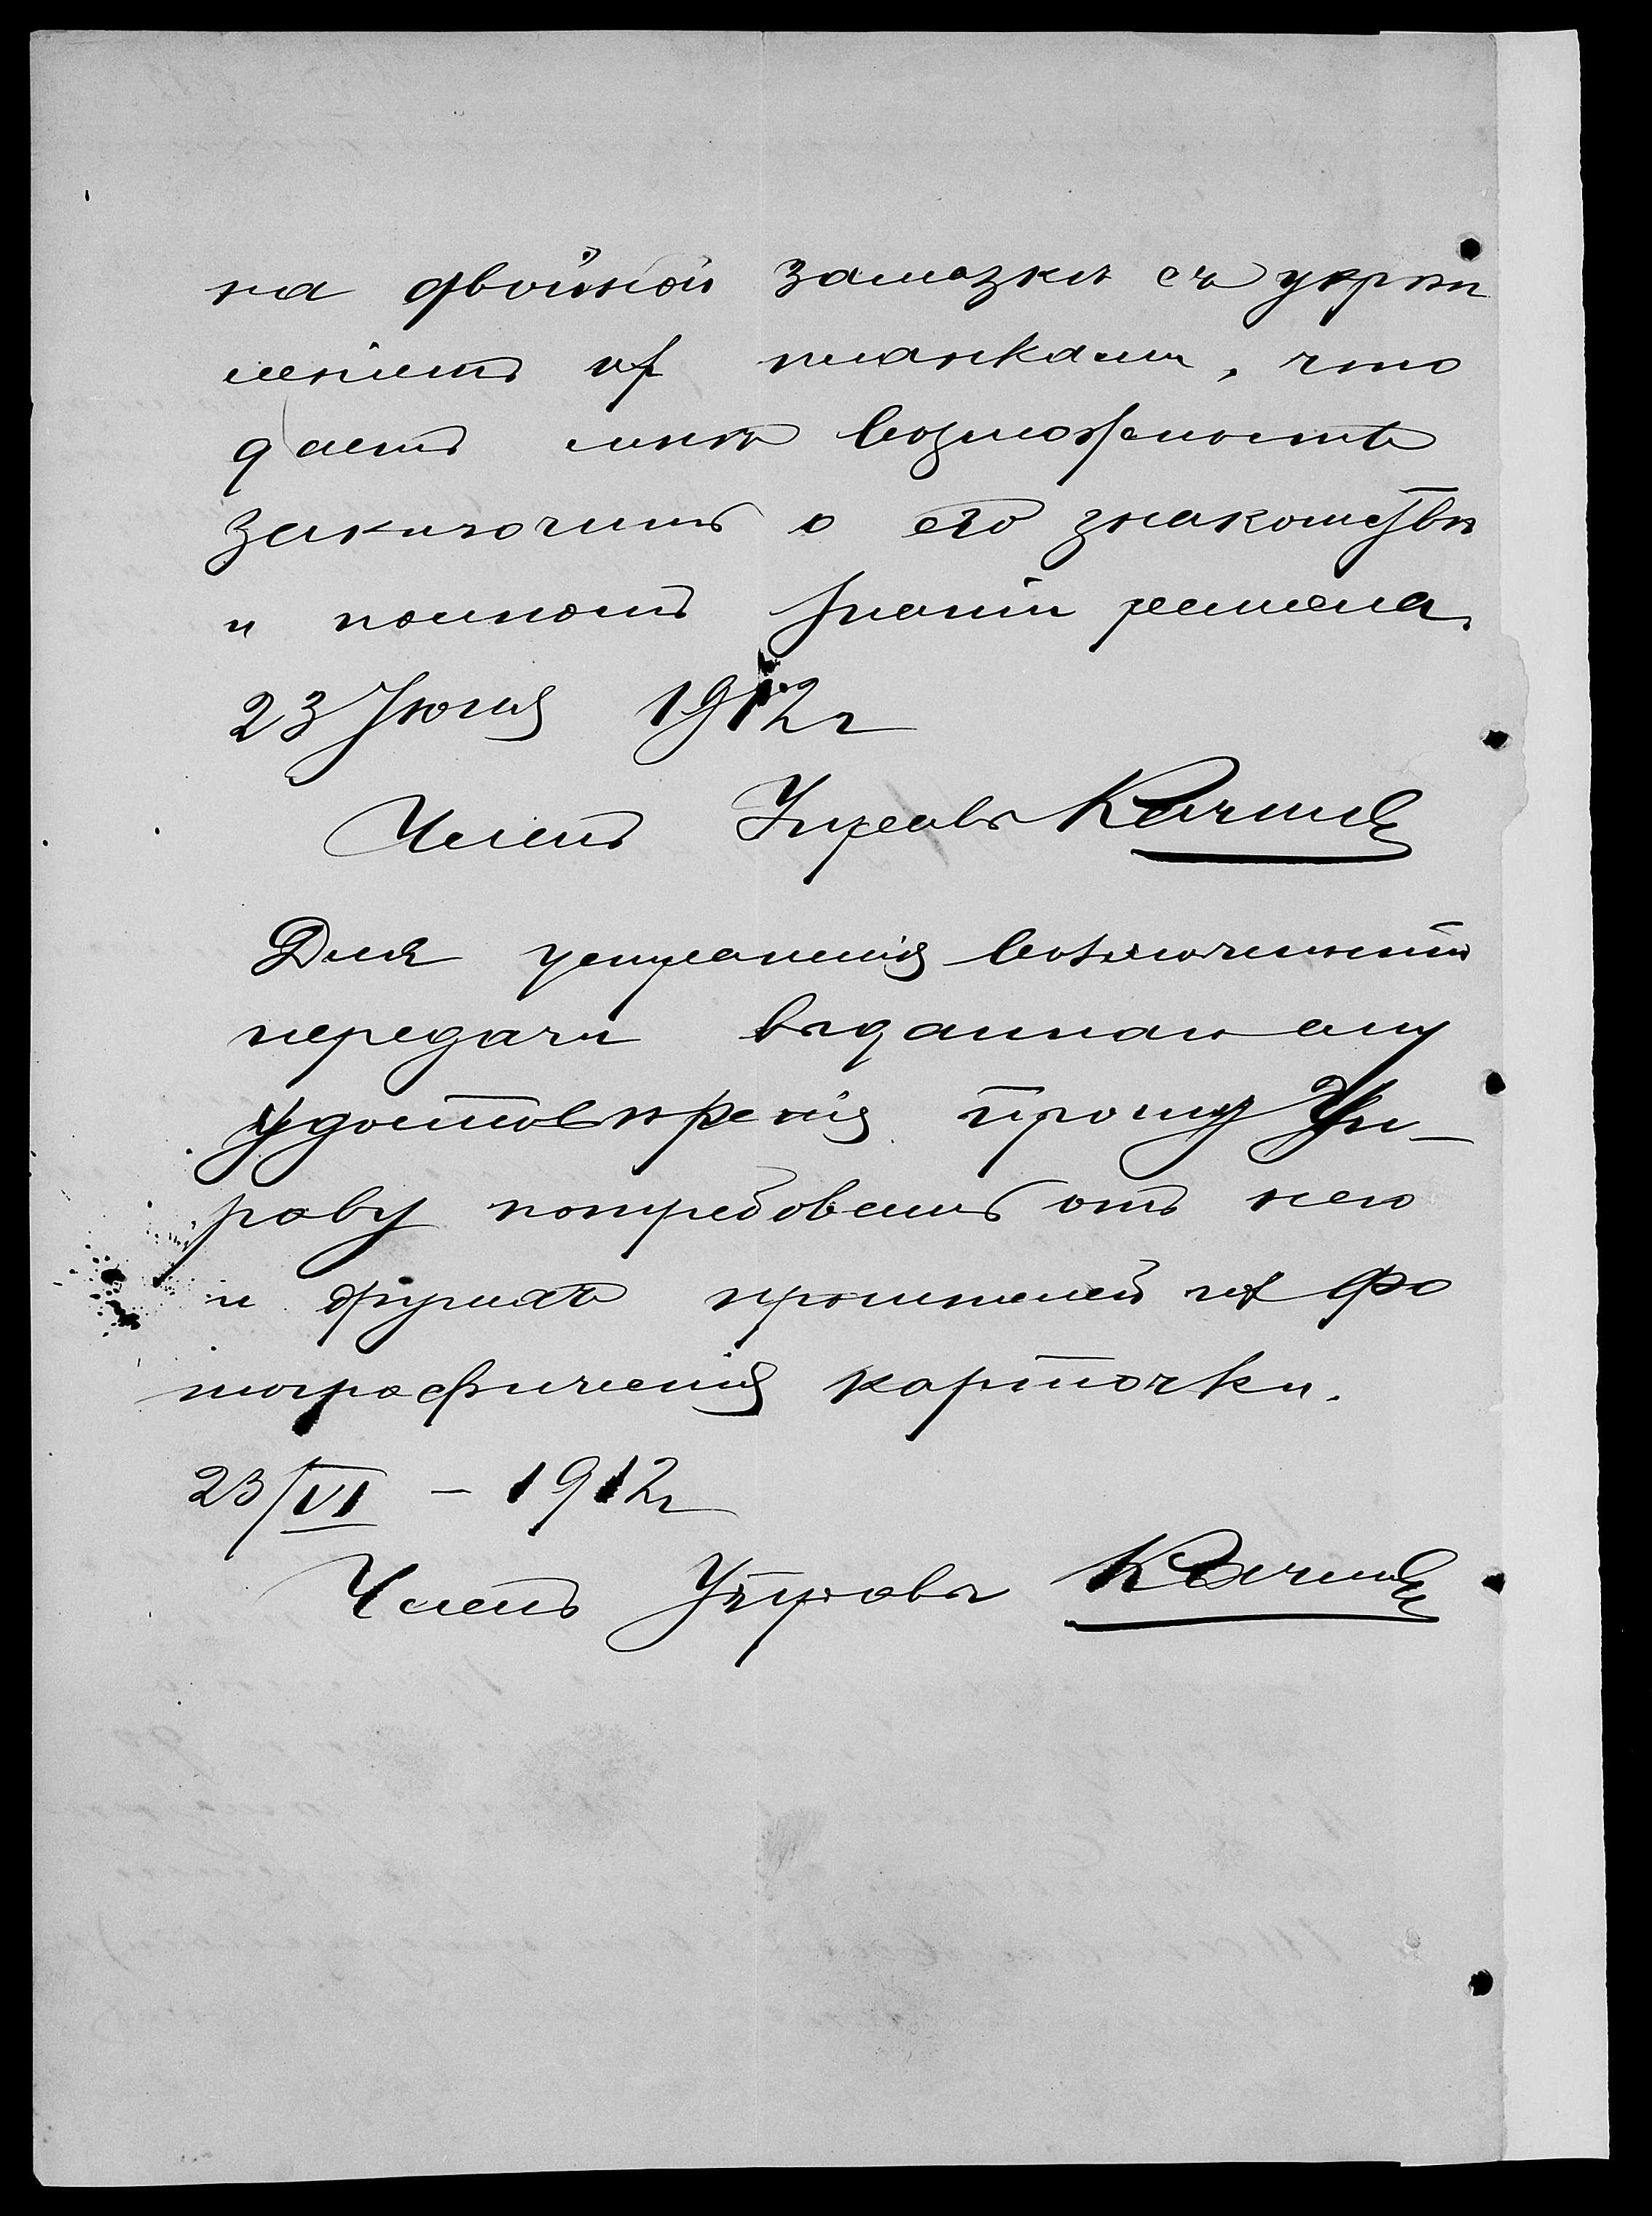 на двойной замазкѣ съ укрѣп
леніемъ их планками, что
даетъ мнѣ возможность
заключить о его знакомствѣ
и полномъ знаніи ремесла.
23 Іюня 1912 г
Членъ Управы
Для устраненія возможности
передачи выданнаго ему
удостовѣренія прошу Уп-
раву потребовать отъ него
и другихъ просителей их фо
тографическія карточки.
23/VI – 1912 г
Членъ Управы